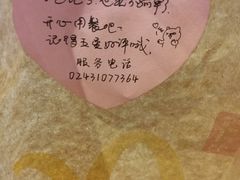 开心用餐吧~
记得五星好评哦
服务电话
02431077364